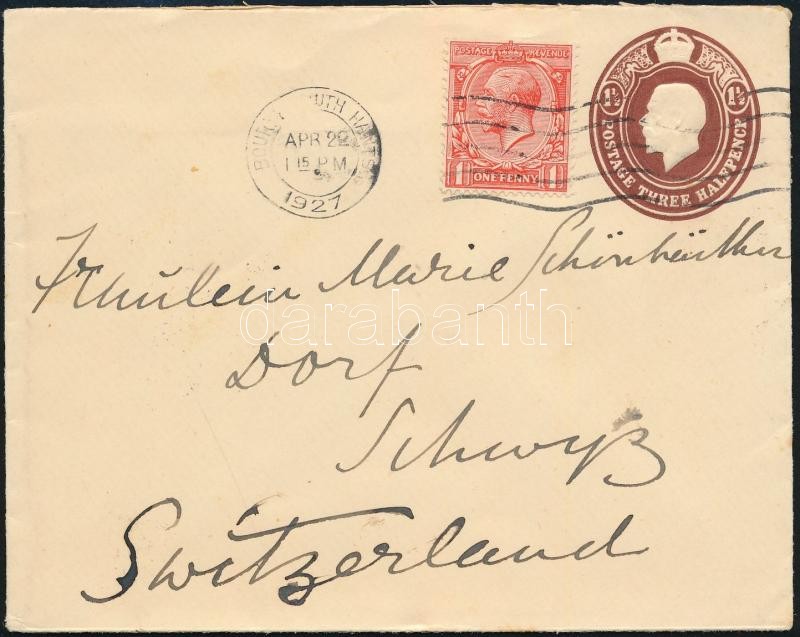 POSTAGE REVENUE
1 ONE PENNY 1
1½ 1½
POSTAGE THREE HALFPENCY
BOURNEMOUTH HANTS
APR 22
1 15 PM
1927
Fräulein Marie
Dorf
Schwyz
Switzerland
darabanth